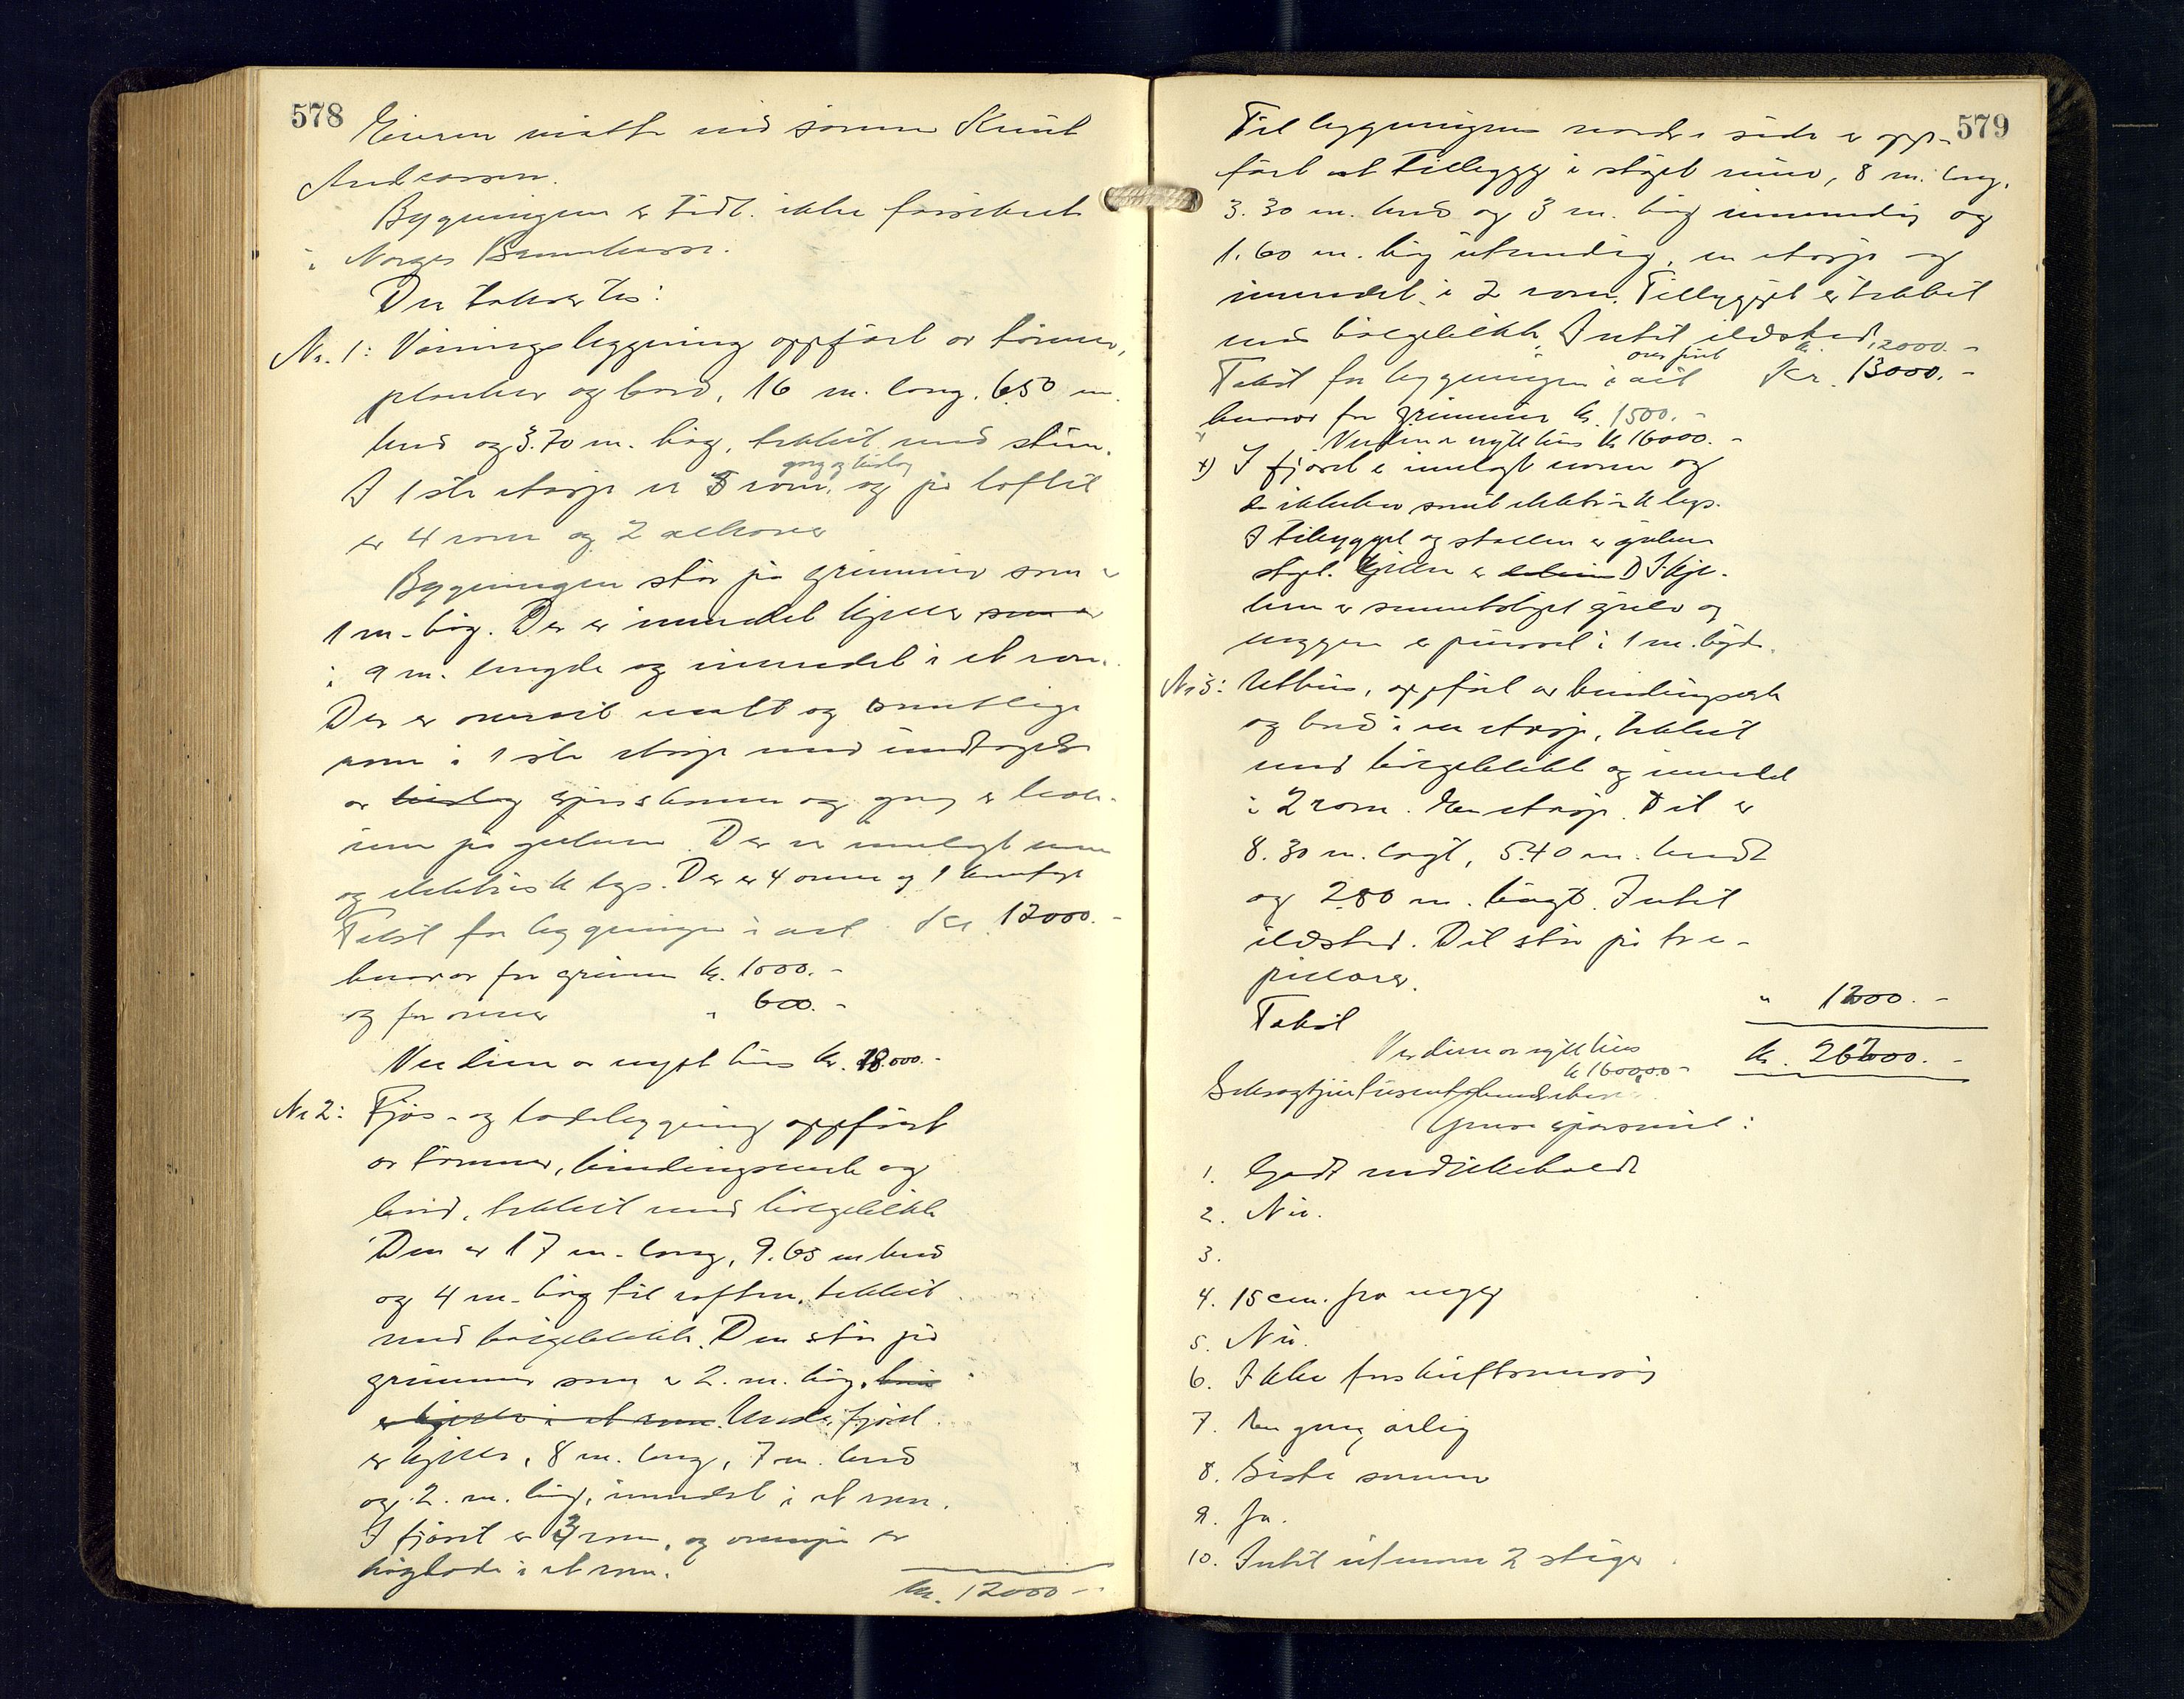 578
Eieren møtte ved sønnen Knut
Andreassen.
Bygningen er tidl. ikke forsikret
i Norges Brannkasse.
Der takseres:
Nr. 1: Våningsbygning oppført av tømmer,
planker og bord, 16 m. lang, 6.50 m.
bred og 3.70 m. høg, tekket med sten.
gang og bislag
I 1ste etasje er 5 rom, og på loftet
er 4 rom og 2 alkover
Bygningen står på grunnmur som er
1 m. høg. Der er innredet kjeller som er
i 9 m. lengde og innredet i et rom.
Der er overalt malt og samtlige
rom i 1ste etasje med undtagelse
av bislag spiskammer og gang er
på gulvene. Der er innlagt vann
og elektrisk lys. Der er 4 ovner og 1 komfyr
Takst for bygningen i alt Kr. 12000.-
hvorav for grunnmur kr. 1000.-
og for ovner " 600.-
Verdien av nytt hus kr. 18.000.-
Nr 2: Fjøs- og ladebygning oppført
av tømmer, bindingsverk og
bord, tekket med bølgeblikk
Den er 17 m. lang, 9.65 m bred
og 4 m. høg til raften, tekket
med bølgeblikk. Den står på
grunnmur som er 2. m. høg,
er kjeller i et rom. Under fjøset
er kjeller, 8 m. lang, 7 m. bred
og 2. m. høg, innredet i et rom.
I fjøset er 3 rom, og ovenpå er
høglade i et rom.
kr. 12000-
579
Til bygningens nordre side er opp-
ført et tilbygg i støpt mur, 8 m. lang,
3.30 m. bred og 3 m. høg innvendig og
1.60 m. høg utvendig, en etasje og
innredet i 2 rom. Tilbygget er tekket
med bølgeblikk. Intet ildsted.
overført kr. 12000.-
Takst for bygningen i alt Kr. 13000.-
hvorav for grunnmur kr. 1500.-
Verdien av nytt hus kr 16000.-
x) I fjøset er innlagt vann og
drikkekar samt elektrisk lys.
I tilbygget og stallen er gulvene
støpt. I kje-
leren er sementstøpt gulv og
veggen er pusset i 1 m. høyde.
Nr 3: Uthus, oppført av bindingsverk
og bord i en etasje, tekket
med bølgeblikk og innredet
i 2 rom. En etasje. Det er
8.30 m. langt, 5.40 m. bredt
og 2.80 m. høgt. Intet
ildsted. Det står på tre-
pillarer.
Takst " 1200.-
Verdien av nytt hus
kr 1600.00-
kr. 26200.-
Almene spørsmål:
1. Godt vedlikeholdt
2. Nei.
3.
4. 15 cm. fra vegg
5. Nei.
6. Ikke forskriftsmessig
7. En gang årlig
8. Siste sommer
9. Ja.
10. Intet utenom 2 stiger